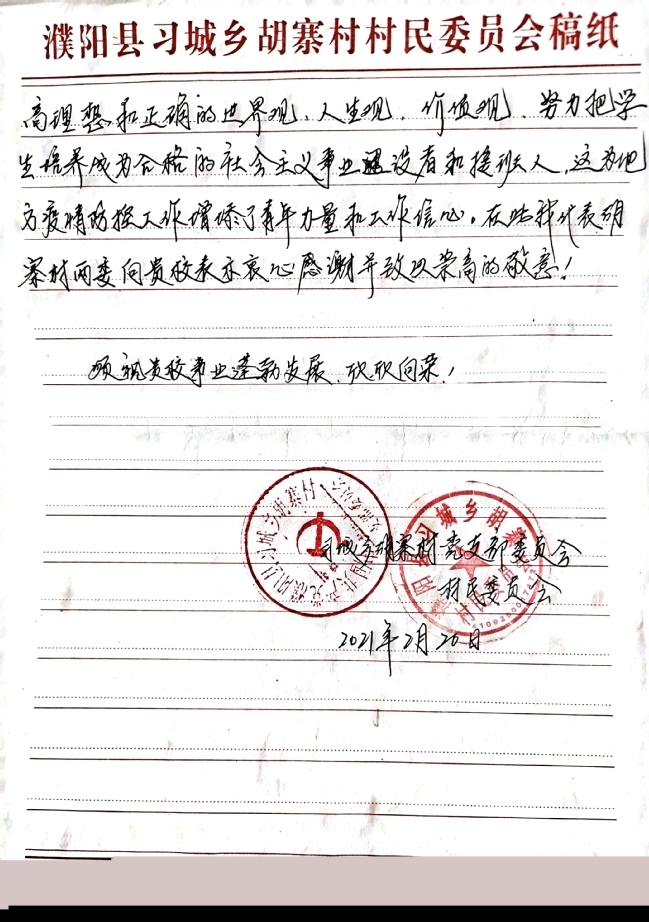 濮阳县习城乡胡寨村村民委员会稿纸
高理想和正确的世界观、人生观、价值观,努力把学
生培养成为合格的社会主义事业建设者和接班人,这为地
方疫情防控工作增添了青年力量和工作信心。在此我代表胡
寨村两委向贵校表示衷心感谢并致以崇高的敬意!
顾祝贵校事业蓬勃发展、欣欣向荣!
习城乡胡寨村党支部委员会
村民委员会
2021年2月26日